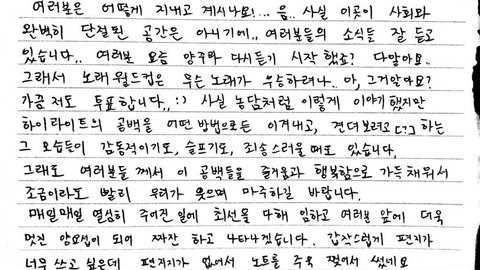 여러분은 어떻게 지내고 계시나요!... 음.. 사실 이곳이 사회와
완벽히 단절된 공간은 아니기에.. 여러분들의 소식들 잘 듣고
있습니다.. 여러분 요즘 양주와 다시듣기 시작했죠? 다알아요.
그래서 노래월드컵은 무슨 노래가 우승하려나.. 아, 그거알아요?
가끔 저도 투표합니다,, :) 사실 농담처럼 이렇게 이야기 했지만
하이라이트의 공백을 어떤 방법으로든 이겨내고, 견뎌보려고 하는
그 모습들이 감동적이기도, 슬프기도, 죄송스러울 때도 있습니다.
그래도 여러분들 께서 이 공백들을 즐거움과 행복함으로 가득 채워서
조금이라도 빨리 우리가 웃으며 마주하길 바랍니다.
매일매일 열심히 주어진 일에 최선을 다해 임하고 여러분 앞에 더욱
멋진 양요섭이 되어 짜잔 하고 나타나겠습니다. 갑작스럽게 편지가
너무 쓰고 싶은데 편지지가 없어서 노트를 주욱 찢어서 썼네요